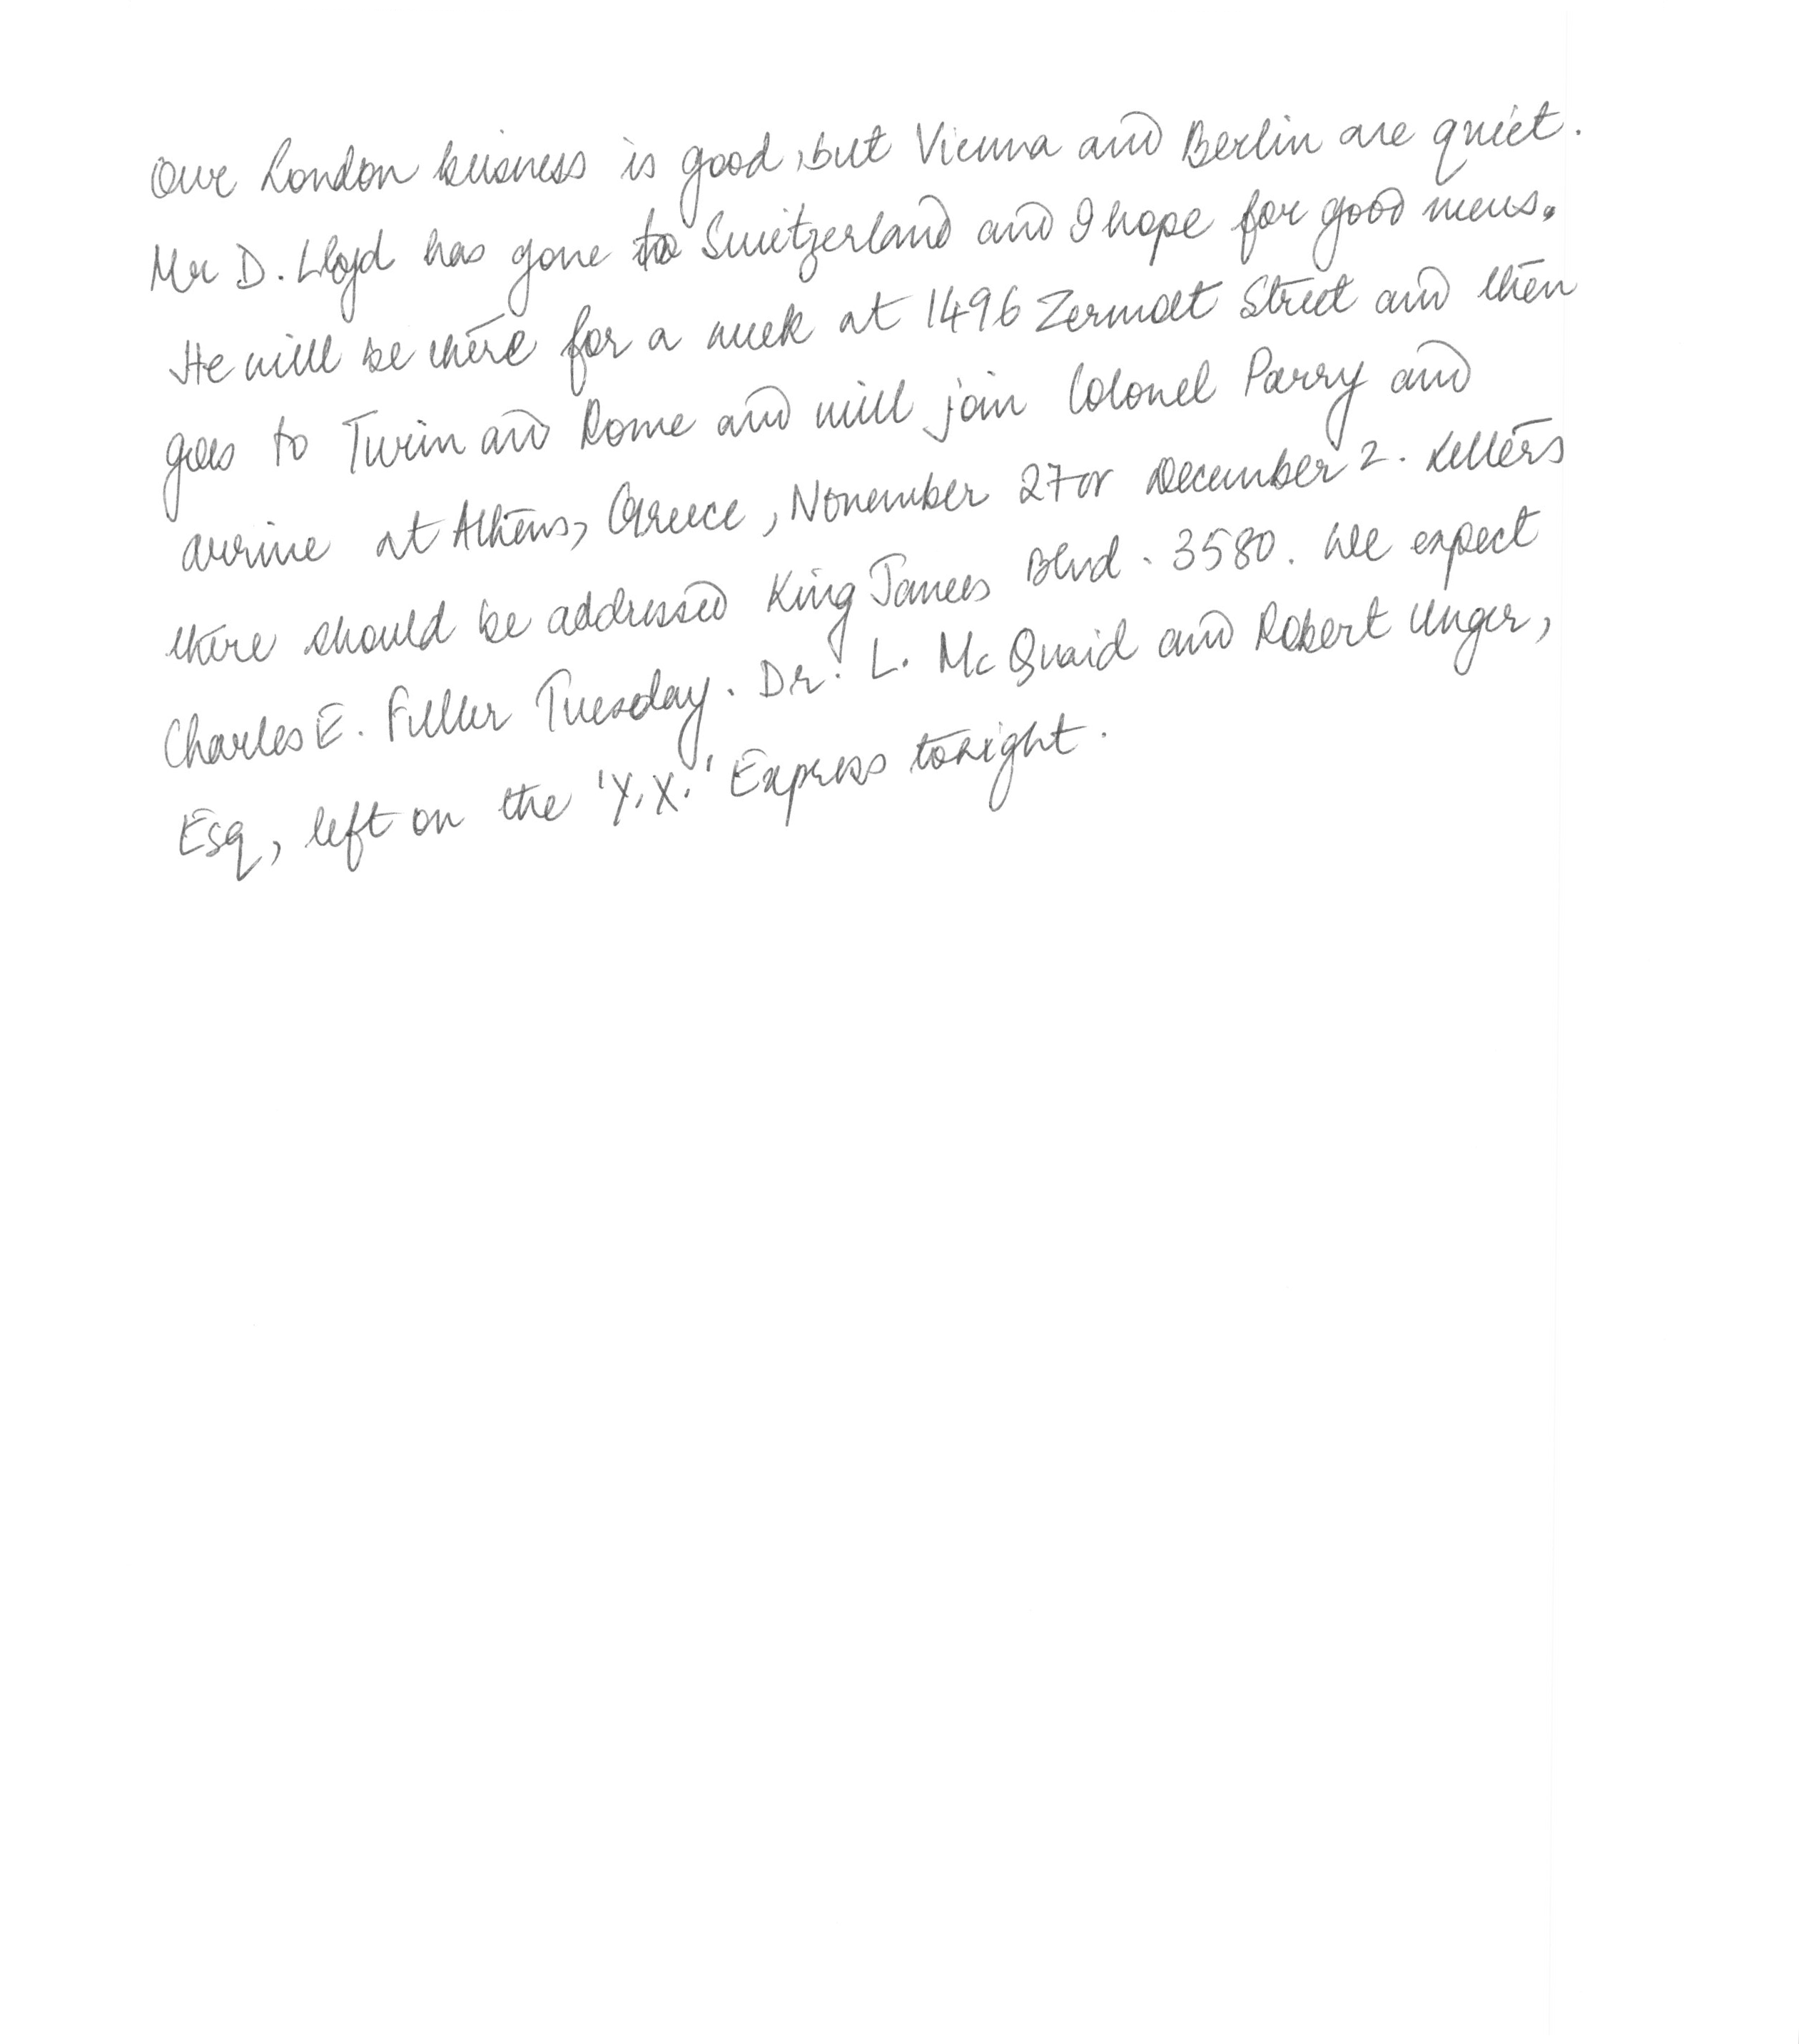 Our London buisness is good, but Vienna and Berlin are quiet.
Mr D. Lloyd has gone to Switzerland and I hope for good news.
He will be there for a week at 1496 Zermatt Street and then
goes to Turin and Rome and will join Colonel Parry and
arrive at Athens, Greece, November 27 or December 2. Letters
there should be addressed King James Blvd. 3580. We expect
Charles E. Fuller Tuesday. Dr. L. Mc Quaid and Robert Unger,
Esq, left on the 'Y.X.' Express tonight.